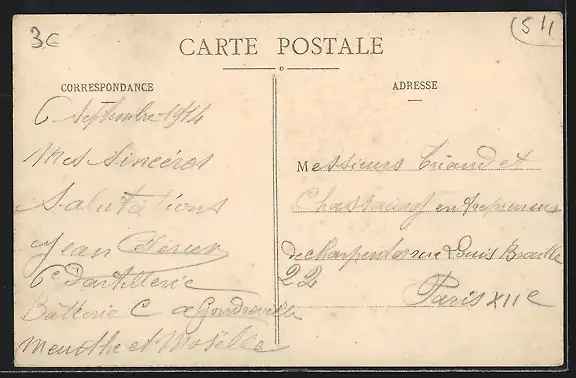 3c
(54
CARTE POSTALE
CORRESPONDANCE
6 Septembre 1914
Mes Sincères
Salutations
Jean
6e D'artillerie
Batterie C a Gondreville
Meurthe et Moselle
ADRESSE
Messieurs et
Chassaing entrepreneurs
de charpentes rue Louis Braille
22
Paris XIIe